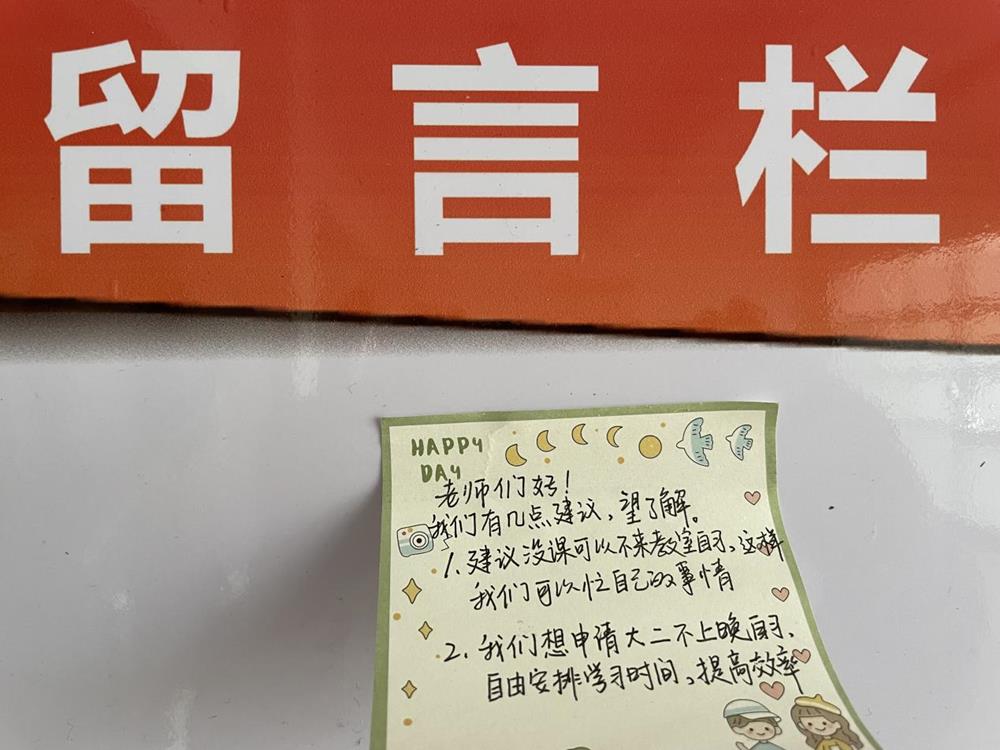 留言栏
HAPPY
DAY
老师们好!
我们有几点建议,望了解。
1.建议没课可以不来教室自习、这样
我们可以忙自己的事情
2.我们想申请大二不上晚自习、
自由安排学习时间、提高效率